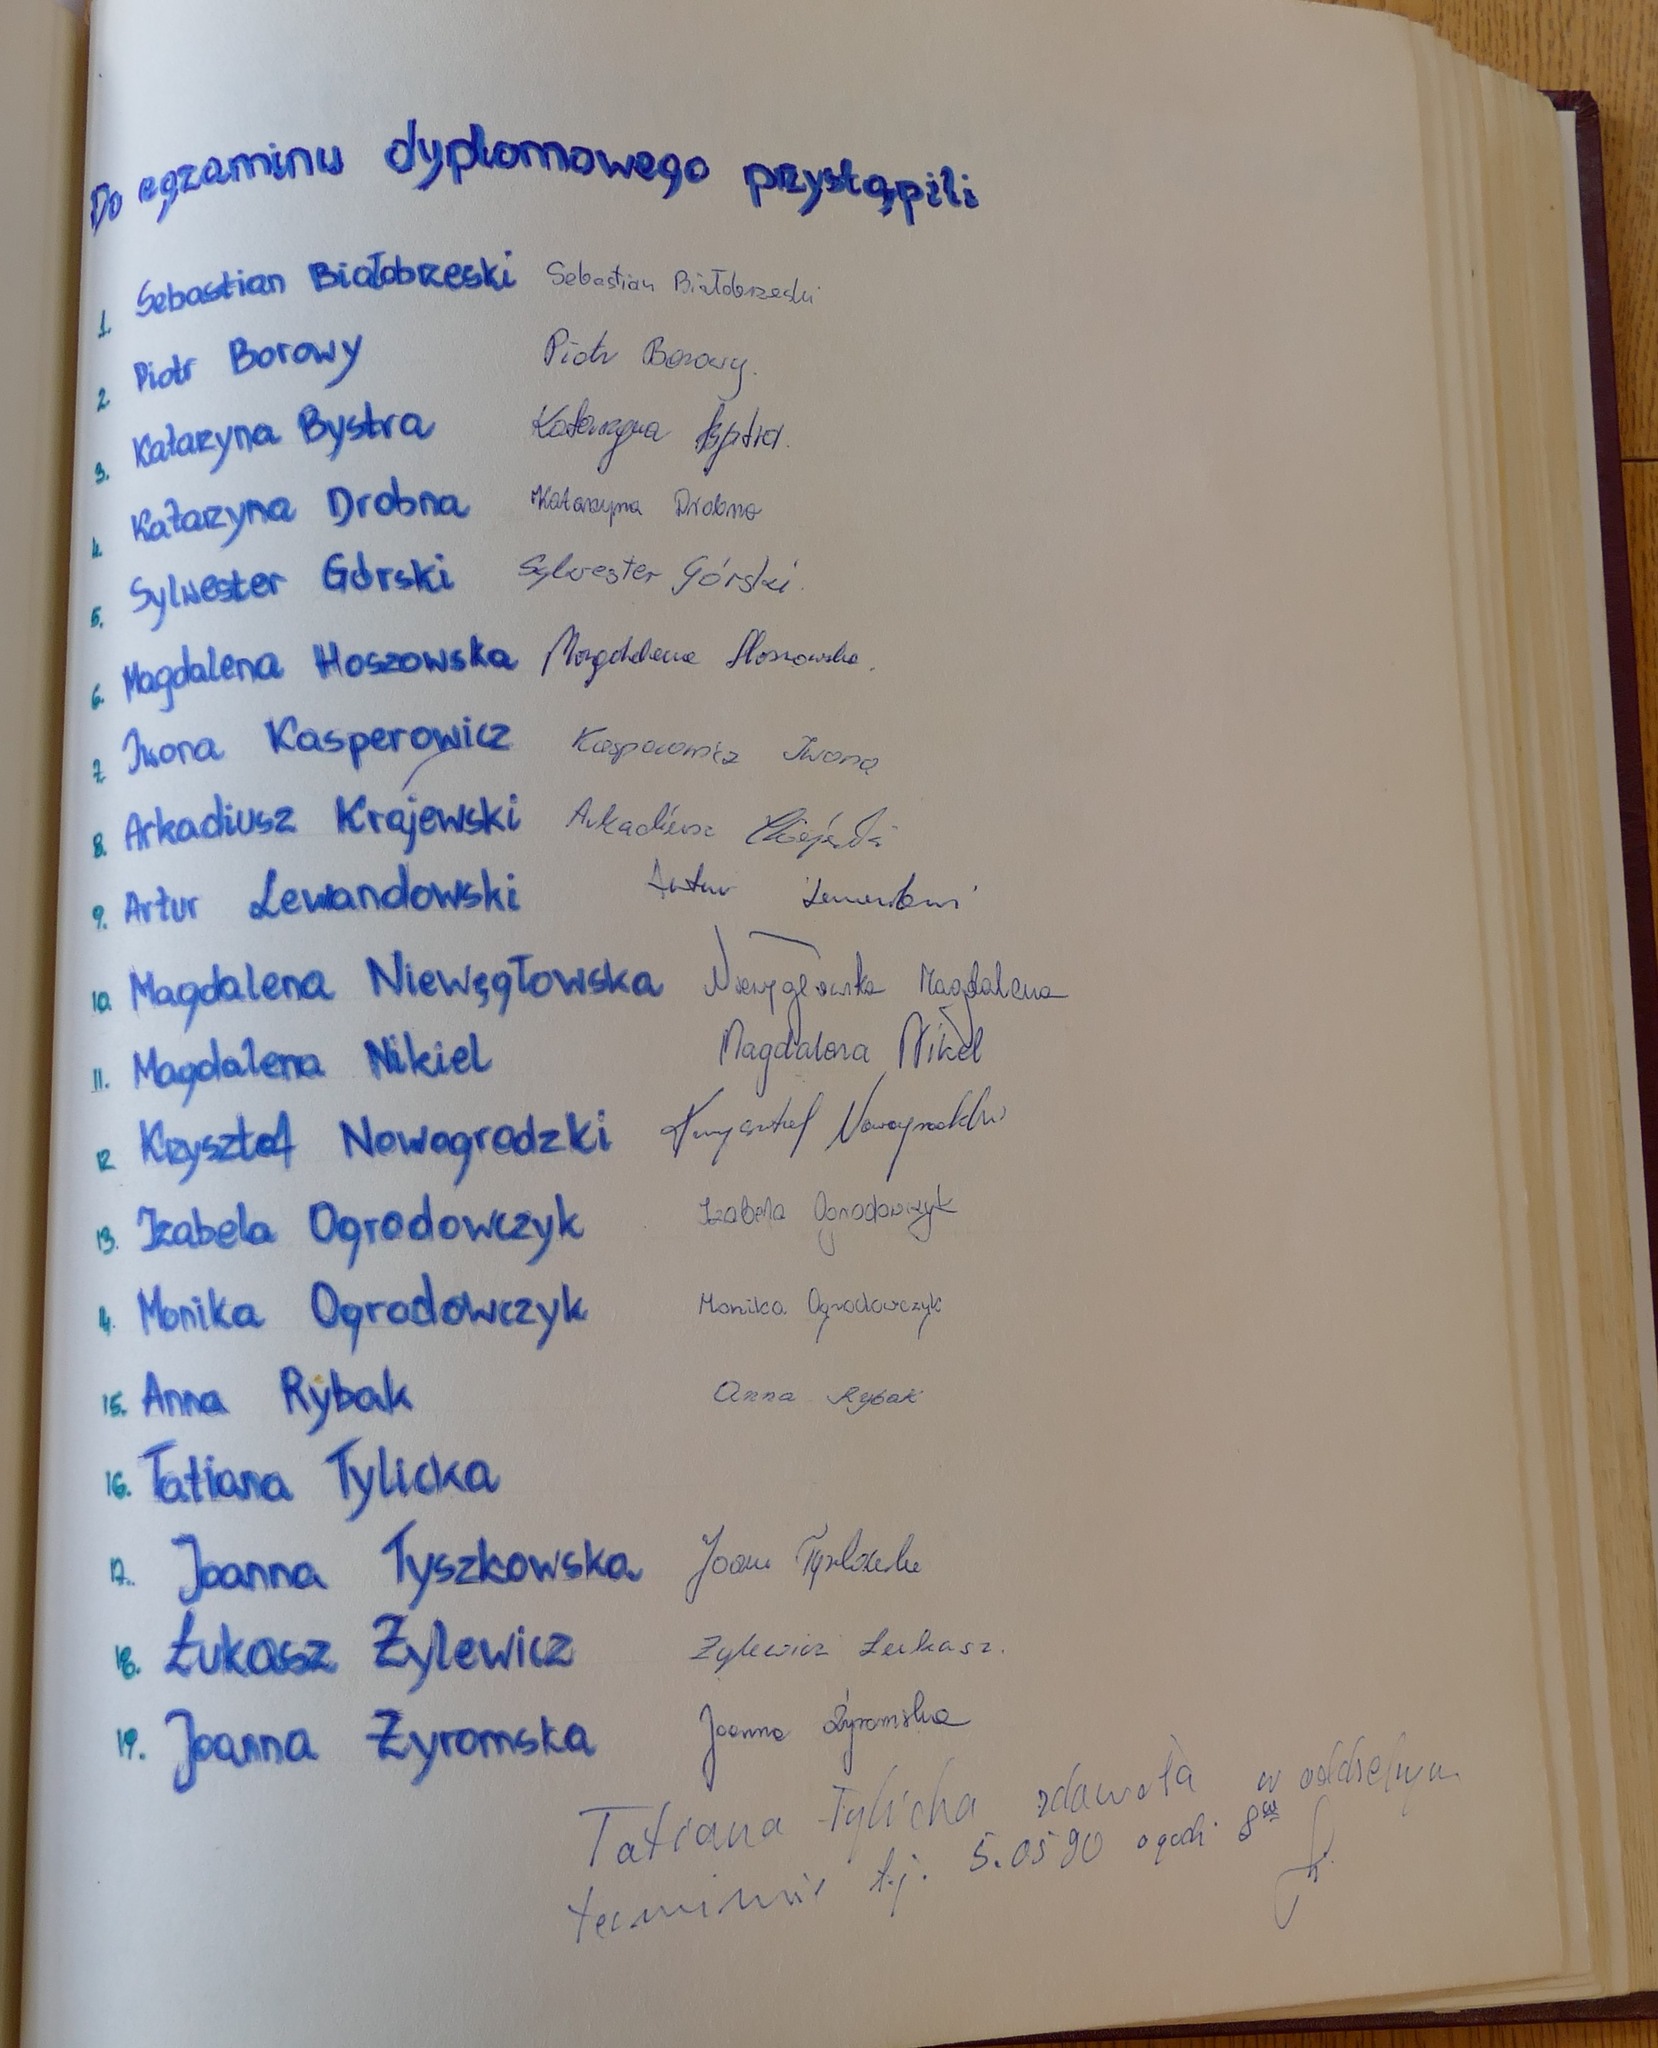 Do egzaminu dyplomowego przystąpili
1. Sebastian Białobrzeski Sebastian Białobrzeski
2. Piotr Borowy Piotr Borowy.
3. Katarzyna Bystra Katarzyna Bystra.
4. Katarzyna Drobna Katarzyna Drobna
5. Sylwester Górski Sylwester Górski.
6. Magdalena Hoszowska Magdalena Hoszowska.
7. Iwona Kasperowicz Kasperowicz Iwona
8. Arkadiusz Krajewski Arkadiusz
9. Artur Lewandowski Artur
10. Magdalena Niewęgłowska Niewęgłowska Magdalena
11. Magdalena Nikiel Magdalena Nikiel
12. Krzysztof Nowogrodzki Krzysztof Nowogrodzki
13. Izabela Ogrodowczyk Izabela Ogrodowczyk
14. Monika Ogrodowczyk Monika Ogrodowczyk
15. Anna Rybak Anna Rybak
16. Tatiana Tylicka
17. Joanna Tyszkowska Joanna
18. Łukasz Żylewicz Żylewicz Łukasz.
19. Joanna Żyromska Joanna Żyromska
Tatiana Tylicka zdawała w oddzielnym
terminie tj. 5.05 90 o godz. 8